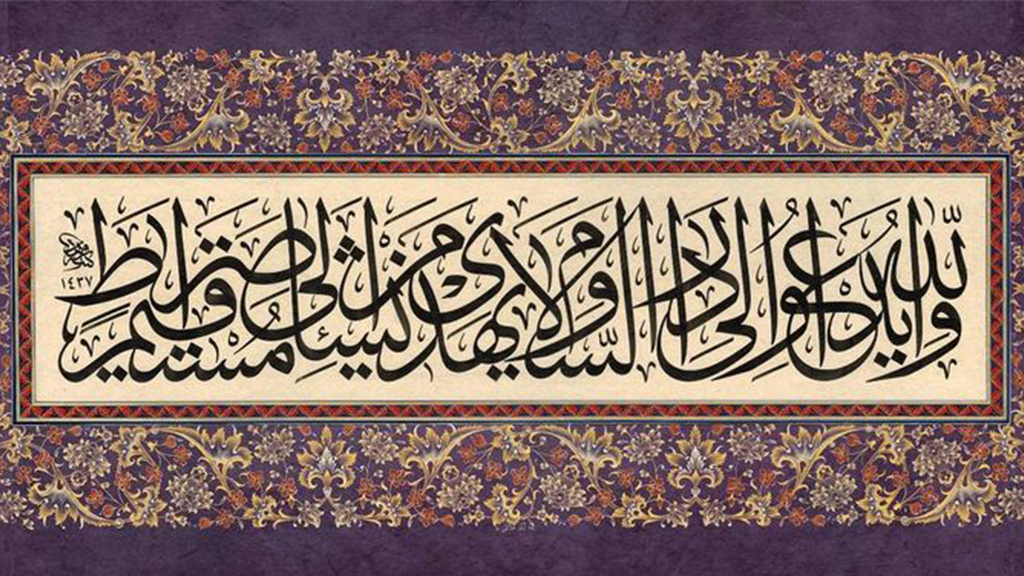 والله يدعوا الى دار السلام ويهدى من يشاء الى صراط مستقيم
١٤٣٧